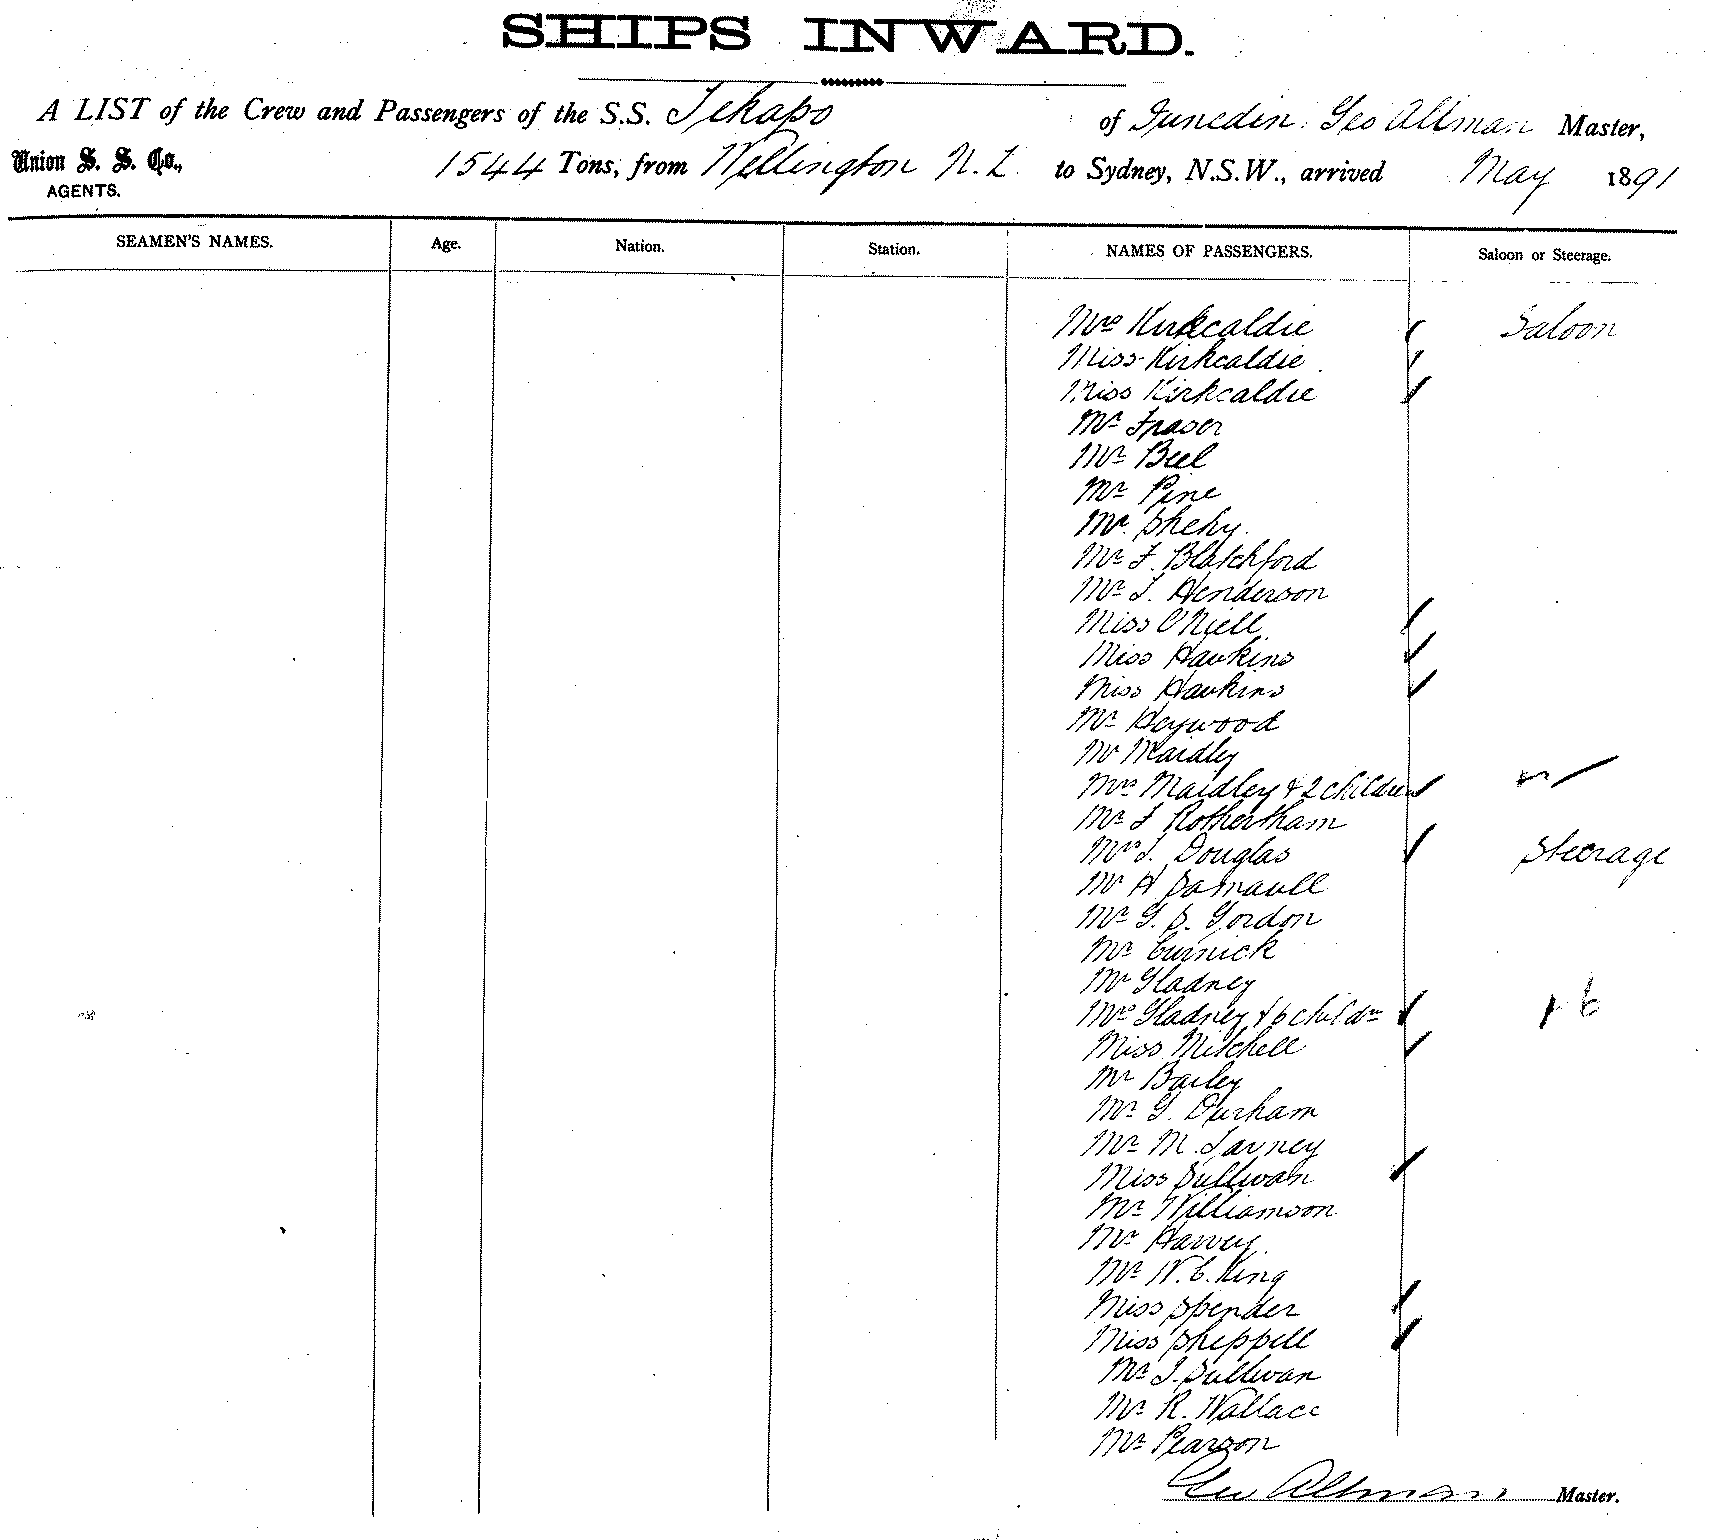 SHIPS INWARD.
A LIST of the Crew and Passengers of the S.S. Tekapo of Dunedin. Geo Allman Master,
Union S. S. Co., 1544 Tons, from Wellington N.Z. to Sydney, N.S.W., arrived May 1891
AGENTS.
SEAMEN'S NAMES. Age. Nation. Station. NAMES OF PASSENGERS. Saloon or Steerage.
Mrs Kirkcaldie Saloon
Miss Kirkcaldie
Miss Kirkcaldie
Mr Fraser
Mr Beel
Mr Pine
Mr Shehy.
Mr F. Blatchford
Mr J. Henderson
Miss O'Niell
Miss Hawkins
Miss Hawkins
Mr Heywood
Mr Maidley
Mrs Maidley & 2 children
Mr F Rothertham
Mrs J. Douglas Steerage
Mr H
Mr G. S. Gordon
Mr Curnick
Mr Gladney
Mrs Gladney & 6 childn 6
Miss Mitchell
Mr Bailey
Mr G. Durham
Mr M.
Miss Sullivan
Mr Williamson
Mr Harvey.
Mr W. C. King
Miss Spender
Miss Sheppell
Mr J. Sullivan
Mr R. Wallace
Mr Pearson
Geo Allman Master.